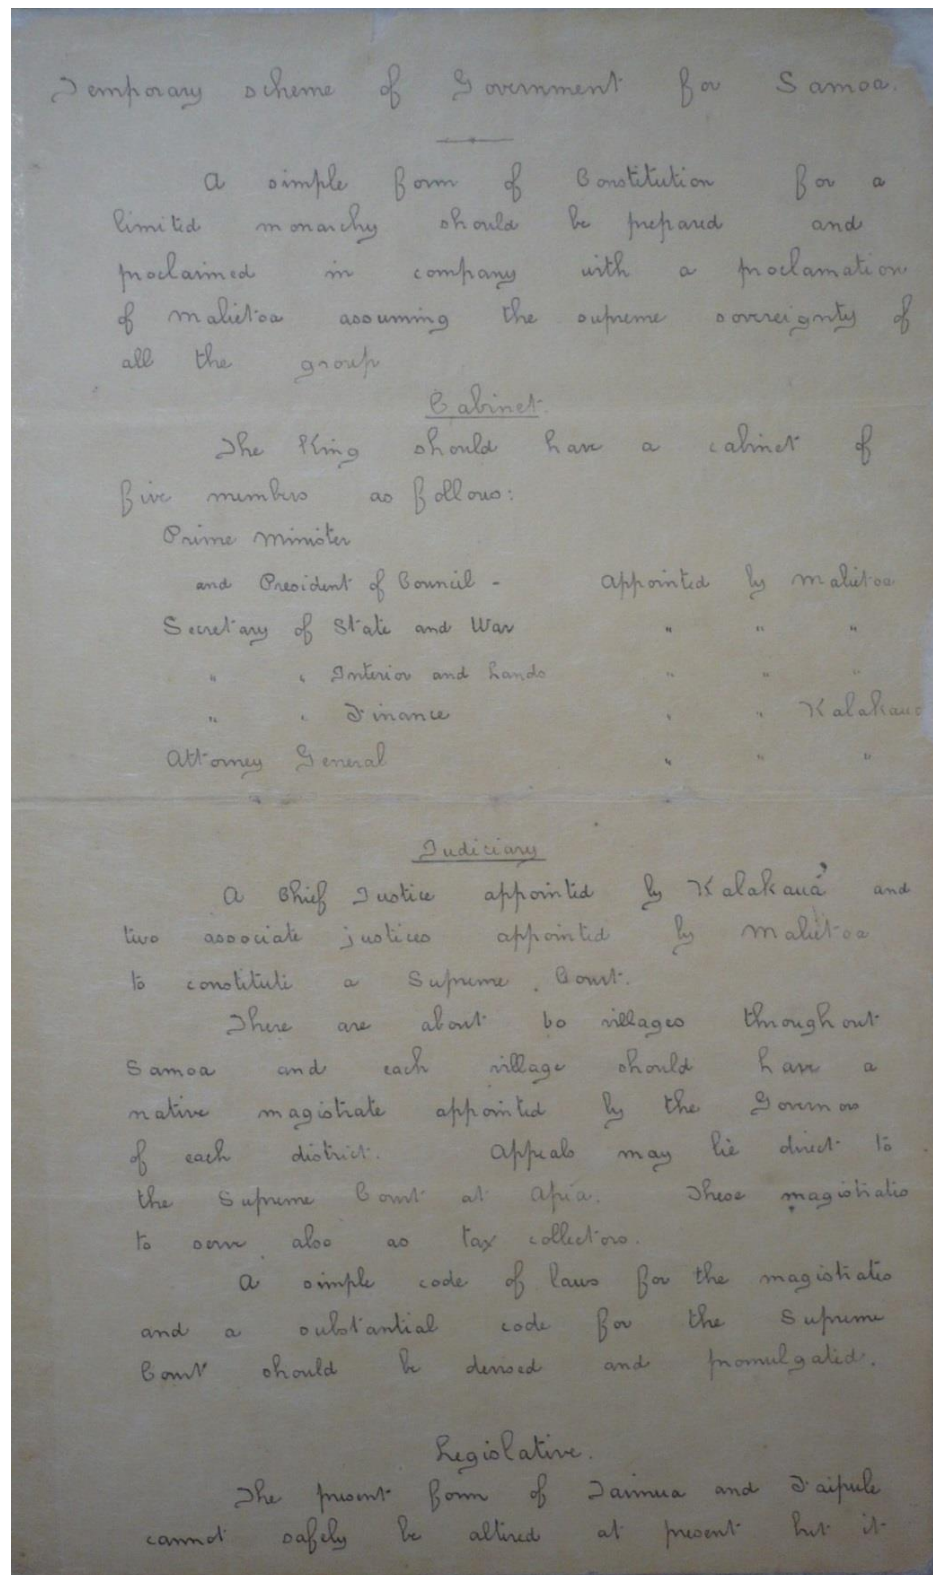 Temporary scheme of Government for Samoa.
A simple form of Constitution for a
limited monarchy should be prepared and
proclaimed in company with a proclamation
of Malietoa assuming the supreme sovereignty of
all the group
Cabinet.
The King should have a cabinet of
five members as follows:
Prime Minister
and President of Council - appointed by Malietoa
Secretary of State and War " " "
" " Interior and Lands " " "
" " Finance " " Kalakaua
Attorney General " " "
Judiciary
A Chief Justice appointed by Kalakaua and
two associate justices appointed by Malietoa
to constitute a Supreme Court.
There are about 60 villages throughout
Samoa and each village should have a
native magistrate appointed by the Governor
of each district. Appeals may lie direct to
the Supreme Court at Apia. These magistrates
to serve also as tax collectors.
A simple code of laws for the magistrates
and a substantial code for the Supreme
Court should be devised and promulgated.
Legislative.
The present form of Taimua and Faipule
cannot safely be altered at present but it